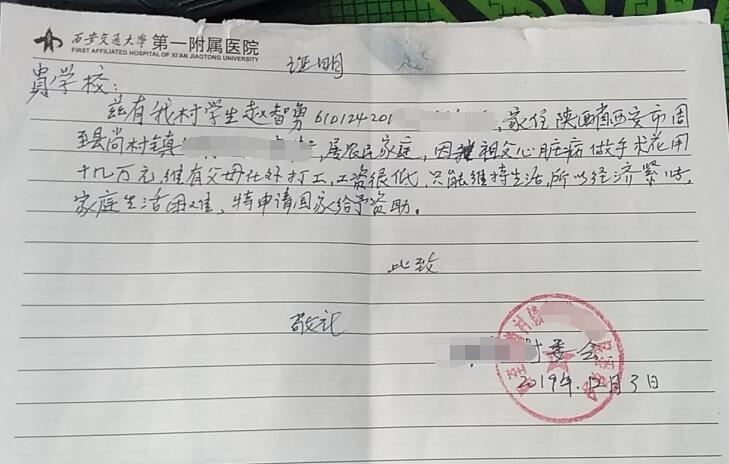 西安交通大学 第一附属医院
FIRST AFFILIATED HOSPITAL OF XI'AN JIAOTONG UNIVERSITY
证明
贵学校:
兹有我村学生赵智勇610124201 ,家住陕西省西安市周
至县尚村镇 ,属农民家庭,因祖父心脏病做手术花用
十几万元,维有父母在外打工,工资很低,只能维持生活,所以经济紧张,
家庭生活困难,特申请国家给予资助。
此致
敬礼
村委会
2019年12月3日